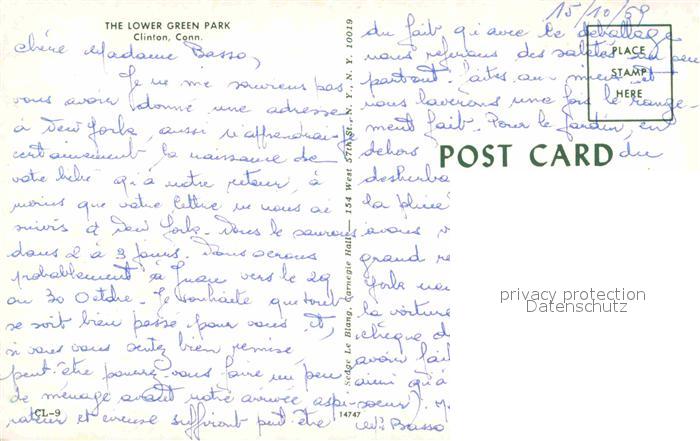 THE LOWER GREEN PARK
Clinton, Conn.
15/10/59
Chère Madame Basso,
Je ne me souviens pas
vous avoir donné une adresse
à New York, aussi n'apprendrai-je
certainement la naissance de
votre bébé qu'à notre retour, à
moins que votre lettre ne nous ai
suivis à New York. Nous le saurons
dans 2 à 3 jours. Nous serons
probablement à Juan vers le 29
ou 30 Octobre. Je souhaite que tout
se soit bien passé pour vous et,
si vous vous sentez bien remise,
peut-être pourrez-vous faire un peu
de ménage avant notre arrivée aspi-
rateur et cireuse suffiront peut être
CL-9
14747
Sedge Le Blang, Carnegie Hall — 154 West 57th St., N. Y., N. Y. 10019
du fait qu'avec le déballage
nous referons des saletés un peu
partout. Faites au mieux et
nous laverons une fois le range-
ment fait. Pour le jardin, en
dehors du
desherba
la pluie
avons
grand
York
la voiture
chèque d
avoir fait
ainsi qu'à
soeur).
Basso
PLACE
STAMP
HERE
POST CARD
privacy protection
Datenschutz